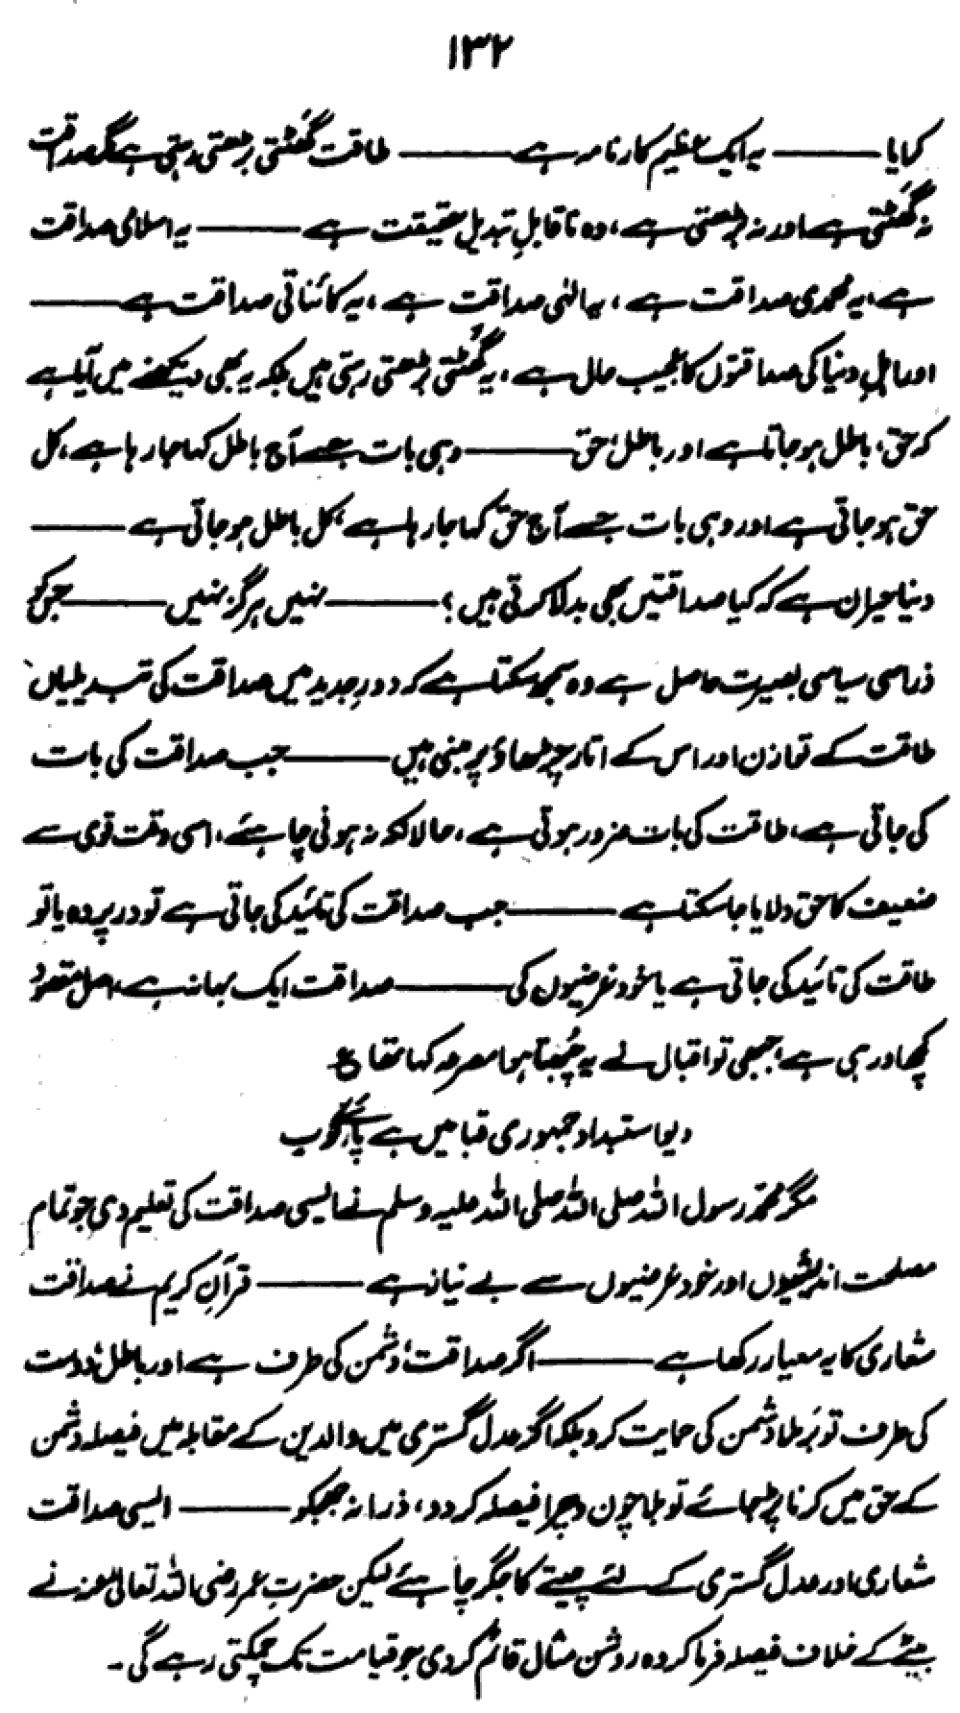 ۱۳۲
کمایا ——— یہ ایک عظیم کارنامہ ہے ——— طاقت گھٹتی بڑھتی رہتی ہے مگر صداقت
نہ گھٹتی ہے اور نہ بڑھتی ہے، وہ ناقابلِ تبدیل حقیقت ہے ——— یہ اسلامی صداقت
ہے، یہ محمدی صداقت ہے، یہ الٰہی صداقت ہے، یہ کائناتی صداقت ہے ———
اور اہلِ دنیا کی صداقتوں کا عجیب حال ہے، یہ گھٹتی بڑھتی رہتی ہیں بلکہ یہ بھی دیکھنے میں آیا ہے
کہ حق، باطل ہو جاتا ہے اور باطل، حق ——— وہی بات جسے آج باطل کہا جا رہا ہے، کل
حق ہو جاتی ہے اور وہی بات جسے آج حق کہا جا رہا ہے، کل باطل ہو جاتی ہے ———
دنیا حیران ہے کہ کیا صداقتیں بھی بدلا کرتی ہیں؟ ——— نہیں ہرگز نہیں ——— جس کو
ذرا سی سیاسی بصیرت حاصل ہے وہ سمجھ سکتا ہے کہ دورِ جدید میں صداقت کی تبدیلیاں
طاقت کے توازن اور اس کے اتار چڑھاؤ پر مبنی ہیں ——— جب صداقت کی بات
کی جاتی ہے، طاقت کی بات ضرور ہوتی ہے، حالانکہ نہ ہونی چاہئے، اسی وقت قوی سے
ضعیف کا حق دلایا جا سکتا ہے ——— جب صداقت کی تائید کی جاتی ہے تو در پردہ یا تو
طاقت کی تائید کی جاتی ہے یا خود غرضیوں کی ——— صداقت ایک بہانہ ہے، اصل مقصود
کچھ اور ہی ہے، جبھی تو اقبال نے یہ چُبھتا ہوا مصرعہ کہا تھا ع
دیو استبداد جمہوری قبا میں ہے پائے کوب
مگر محمد رسول اللہ صلی اللہ صلی اللہ علیہ وسلم نے ایسی صداقت کی تعلیم دی جو تمام
مصلحت اندیشیوں اور خود غرضیوں سے بے نیاز ہے ——— قرآنِ کریم نے صداقت
شعاری کا یہ معیار رکھا ہے ——— اگر صداقت، دشمن کی طرف ہے اور باطل، دوست
کی طرف تو بَرملا دشمن کی حمایت کرو بلکہ اگر عدل گستری میں والدین کے مقابلہ میں فیصلہ دشمن
کے حق میں کرنا پڑ جائے تو بلا چون و چرا فیصلہ کر دو، ذرا نہ جھجکو ——— ایسی صداقت
شعاری اور عدل گستری کے لئے چیتے کا جگر چاہئے لیکن حضرتِ عمر رضی اللہ تعالیٰ عنہ نے
بیٹے کے خلاف فیصلہ فرما کر وہ روشن مثال قائم کر دی جو قیامت تک چمکتی رہے گی۔